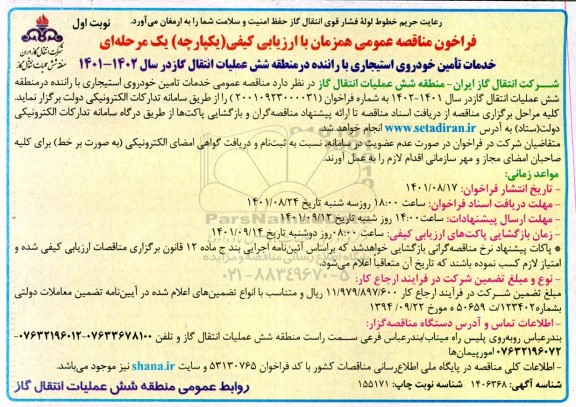 رعایت حریم خطوط لولهٔ فشار قوی انتقال گاز حفظ امنیت و سلامت شما را به ارمغان می‌آورد.
نوبت اول
فراخون مناقصه عمومی همزمان با ارزیابی کیفی(یکپارچه) یک مرحله‌ای
خدمات تأمین خودروی استیجاری با راننده درمنطقه شش عملیات انتقال گازدر سال ۱۴۰۲-۱۴۰۱
شرکت انتقال گاز ایران
منطقه شش عملیات انتقال گاز
شــرکت انتقال گاز ایران- منطقه شش عملیات انتقال گاز در نظر دارد مناقصه عمومی خدمات تامین خودروی استیجاری با راننده درمنطقه
شش عملیات انتقال گازدر سال ۱۴۰۱-۱۴۰۲ به شماره فراخوان (۲۰۰۱۰۹۲۳۰۰۰۰۳۱) را از طریق سامانه تدارکات الکترونیکی دولت برگزار نماید.
کلیه مراحل برگزاری مناقصه از دریافت اسناد مناقصه تا ارائه پیشنهاد مناقصه‌گران و بازگشایی پاکت‌ها از طریق درگاه سامانه تدارکات الکترونیکی
دولت(ستاد) به آدرس www.setadiran.ir انجام خواهد شد.
متقاضیان شرکت در فراخوان در صورت عدم عضویت در سامانه، نسبت به ثبت‌نام و دریافت گواهی امضای الکترونیکی (به صورت بر خط) برای کلیه
صاحبان امضای مجاز و مهر سازمانی اقدام لازم را به عمل آورند.
مواعد زمانی:
- تاریخ انتشار فراخوان: ۱۴۰۱/۰۸/۱۷
- مهلت دریافت اسناد فراخوان: ساعت ۱۸:۰۰ روزسه شنبه تاریخ ۱۴۰۱/۰۸/۲۴
- مهلت ارسال پیشنهادات: ساعت۱۴:۰۰ روز شنبه تاریخ ۱۴۰۱/۰۹/۱۲
- زمان بازگشایی پاکت‌های ارزیابی کیفی: ساعت ۰۸:۰۰روز دوشنبه تاریخ ۱۴۰۱/۰۹/۱۴
* پاکات پیشنهاد نرخ مناقصه‌گرانی بازگشایی خواهدشد که براساس آئین‌نامه اجرایی بند ج ماده ۱۲ قانون برگزاری مناقصات ارزیابی کیفی شده و
امتیاز لازم کسب نموده باشند که تاریخ آن متعاقبا اعلام می‌شود.
- نوع و مبلغ تضمین شرکت در فرآیند ارجاع کار:
مبلغ تضمین شــرکت در فرآیند ارجاع کار ۱۱/۹۷۹/۸۹۷/۶۰۰ ریال و متناسب با انواع تضمین‌های اعلام شده در آیین‌نامه تضمین معاملات دولتی
بشماره۱۲۳۴۰۲/ت ۵۰۶۵۹ ه مورخ ۱۳۹۴/۰۹/۲۲
- اطلاعات تماس و آدرس دستگاه مناقصه‌گزار:
بندرعباس روبه‌روی پلیس راه میناب/بندرعباس فرعی سـمت راست منطقه شش عملیات انتقال گاز و تلفن ۰۷۶۳۳۶۷۸۱۰۰-۰۷۶۳۲۱۹۶۰۱۲-
۰۷۶۳۲۱۹۶۰۷۲ امورپیمان‌ها
- اطلاعات کلی مناقصه در پایگاه ملی اطلاع‌رسانی مناقصات کشور با کد فراخوان ۵۳۱۳۰۷۶۵ و سایت shana.ir نیز موجود می‌باشد.
شناسه آگهی: ۱۴۰۶۳۶۸ شناسه نوبت چاپ: ۱۵۵۱۷۱
روابط عمومی منطقه شش عملیات انتقال گاز
۰۲۱-۸۸۳۴۹۶۷۰-۵